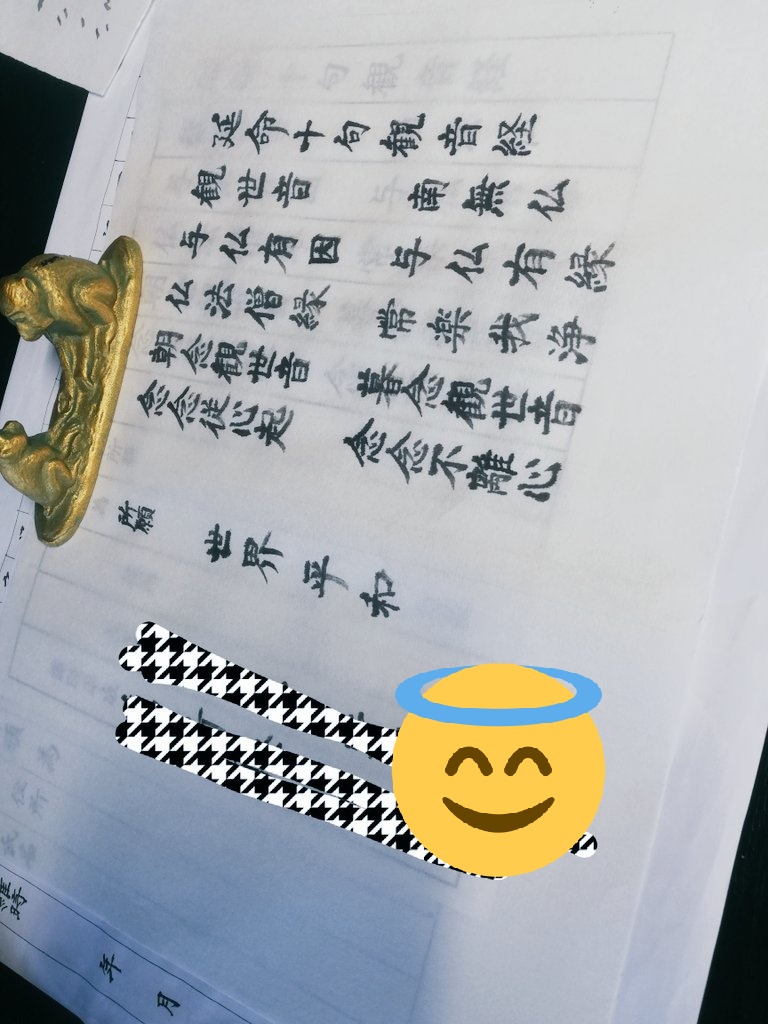 延命十句観音経
観世音 南無仏
与仏有因 与仏有縁
仏法僧縁 常楽我浄
朝念観世音 暮念観世音
念念従心起 念念不離心
所願 世界平和
年 月